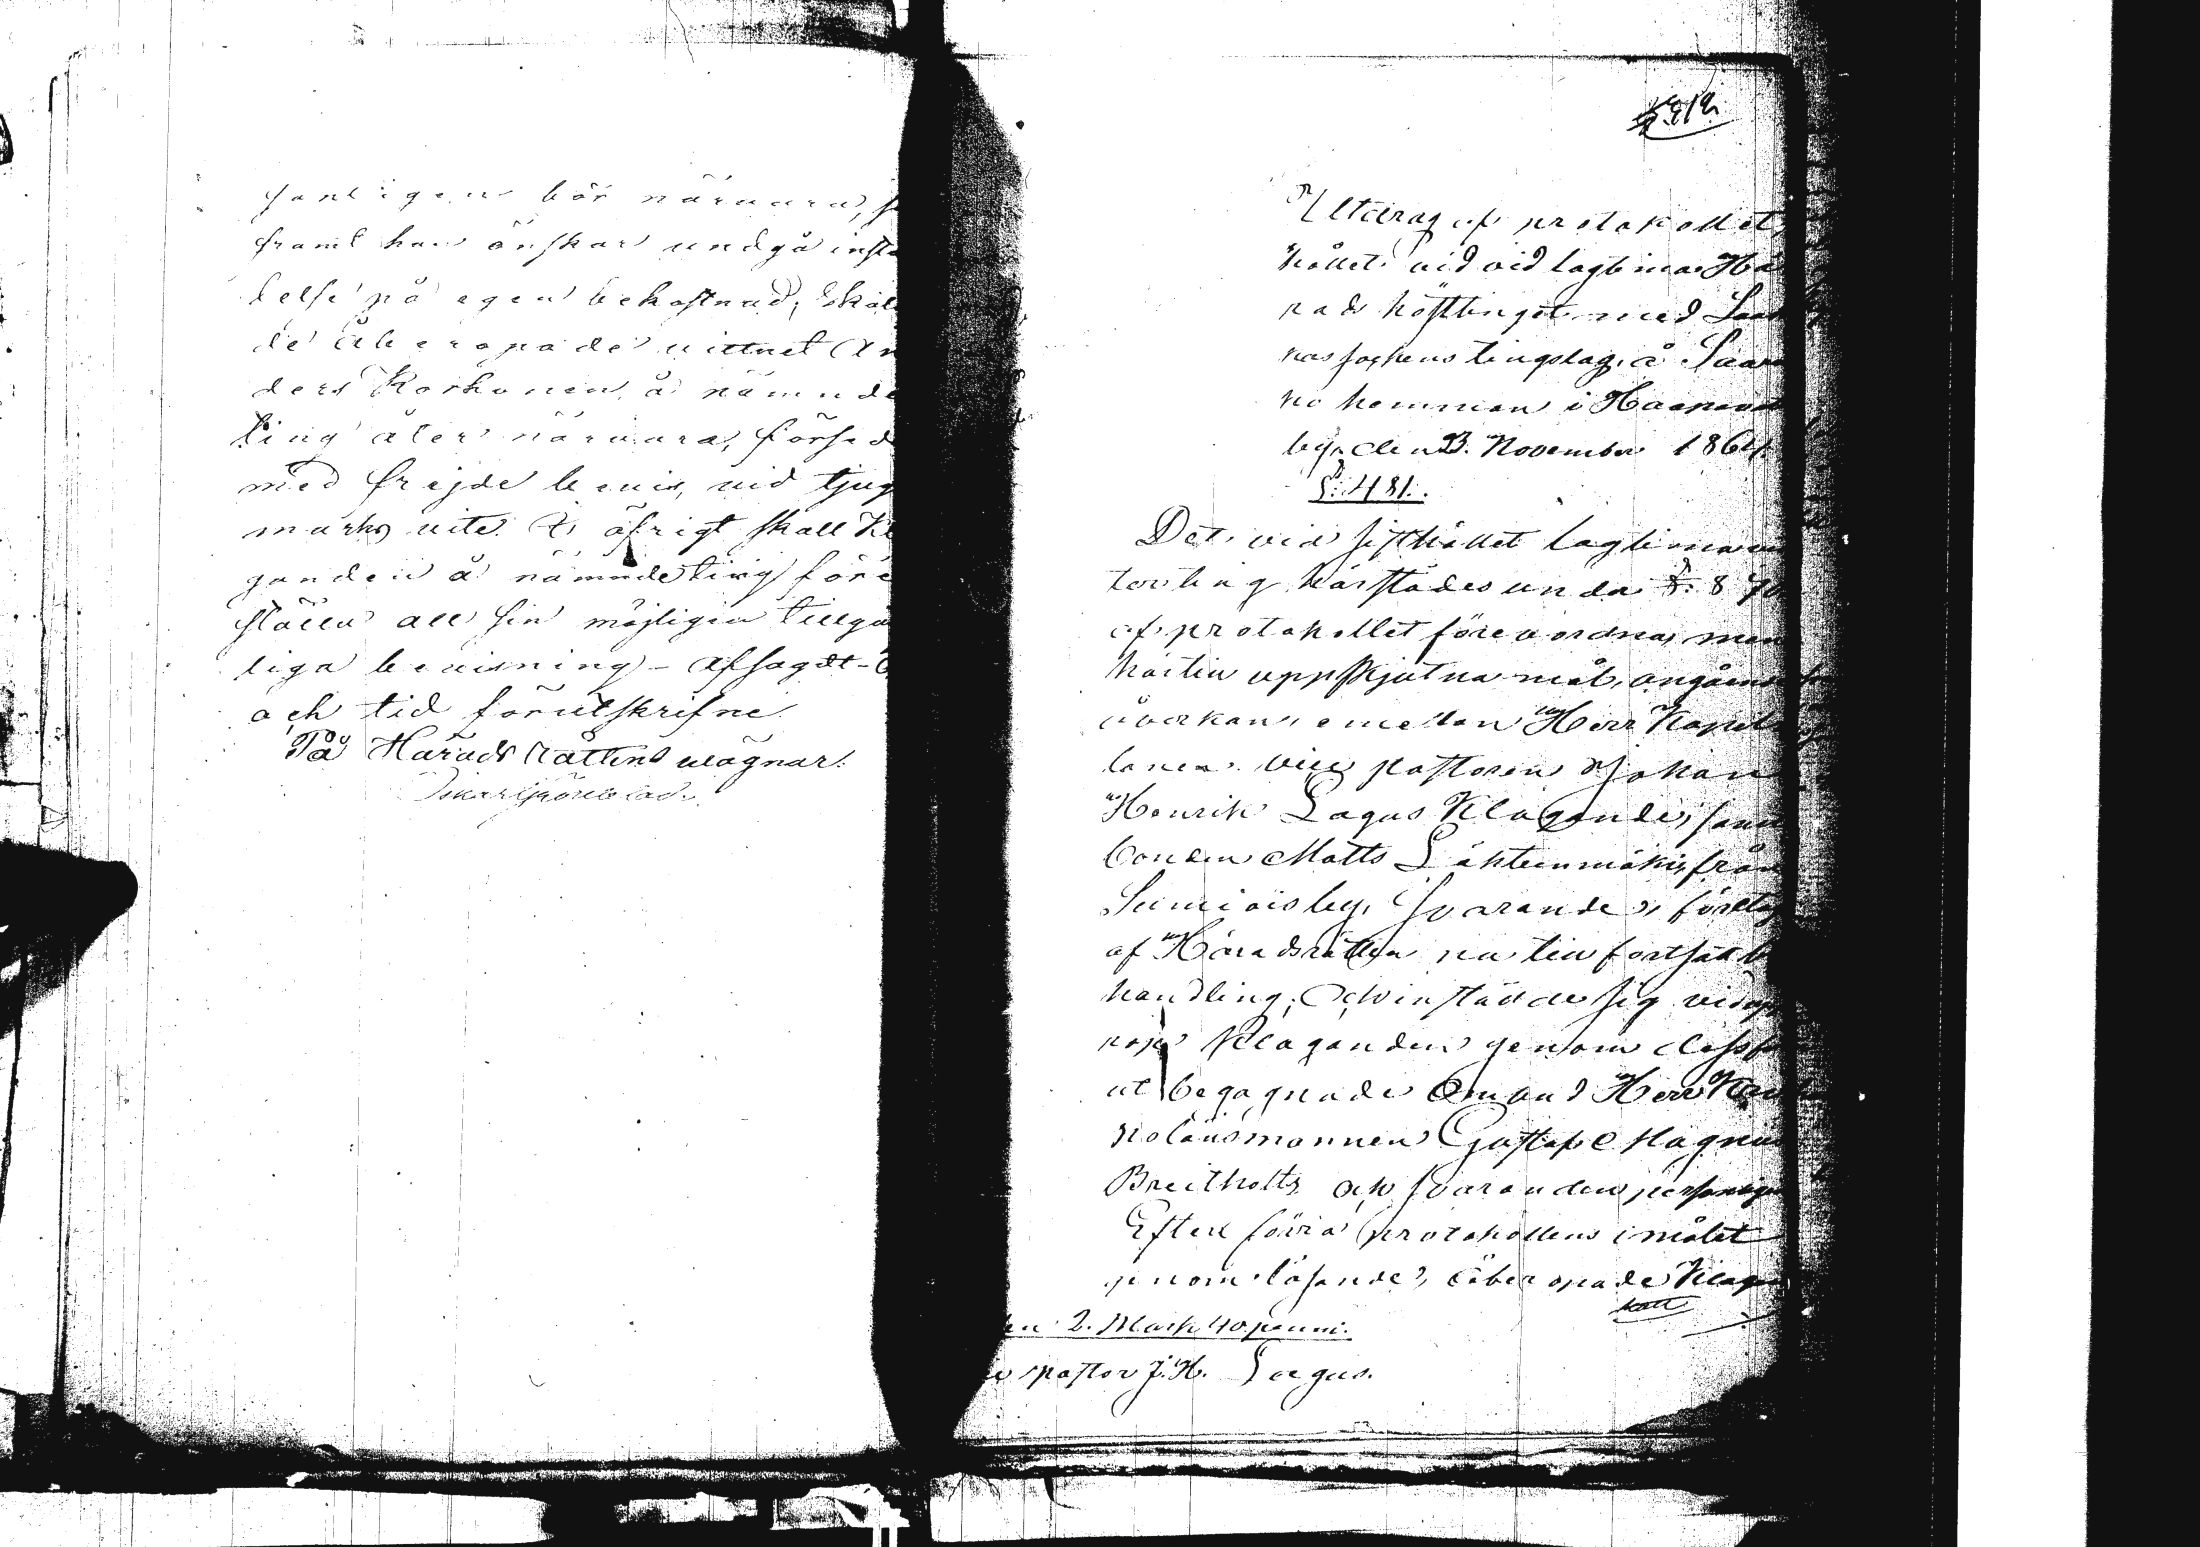 sonligen bör närvara, s
framt han önskar undgå instä
delse på egen bekostnad; Skol
de åberopade vittnet An
ders Korhonen, å nämnde
ting åter närvara, försed
med frejdebevis, vid tjug
marks vite. I öfrigt skall Kä
randen å nämnde ting före
ställa all sin möjligen tillgä
liga bevisning. Afsagdt
och tid förutskrifne.
På Härads Rättens vägnar:
Utdrag af protokollet,
hållet vid vid lagtima Hä
rads hösttinget med Saar
nas sockens tingslag, å Saare
no hemman i Haapava
by, den 23. November 1864.
§: 481.
Det vid sisthållet lagtima vin
terting härstädes under §. 870
af protokollet förevordna, men
härtill uppskjutna mål, angående
åverkan, emellan Herr Kapel
lanen vice pastoren Johan
Henrik Lagus Klagande, samt
bonden Matts Lähteenmäki, från
Sumiais by, Svarande, företog
af Häradsrätten nu till fortsatt be
handling; Och instälde sig vid up
rop Klaganden genom dess för
ut begagnade Ombud Herr Kro
nolänsmannen Gustaf Magnus
Breitholtz och svaranden personligen
Efter förra protokollens i målet
genomläsande, åberopade Klagan
2. Mark 40 penni.
pastor J. H. Lagus.